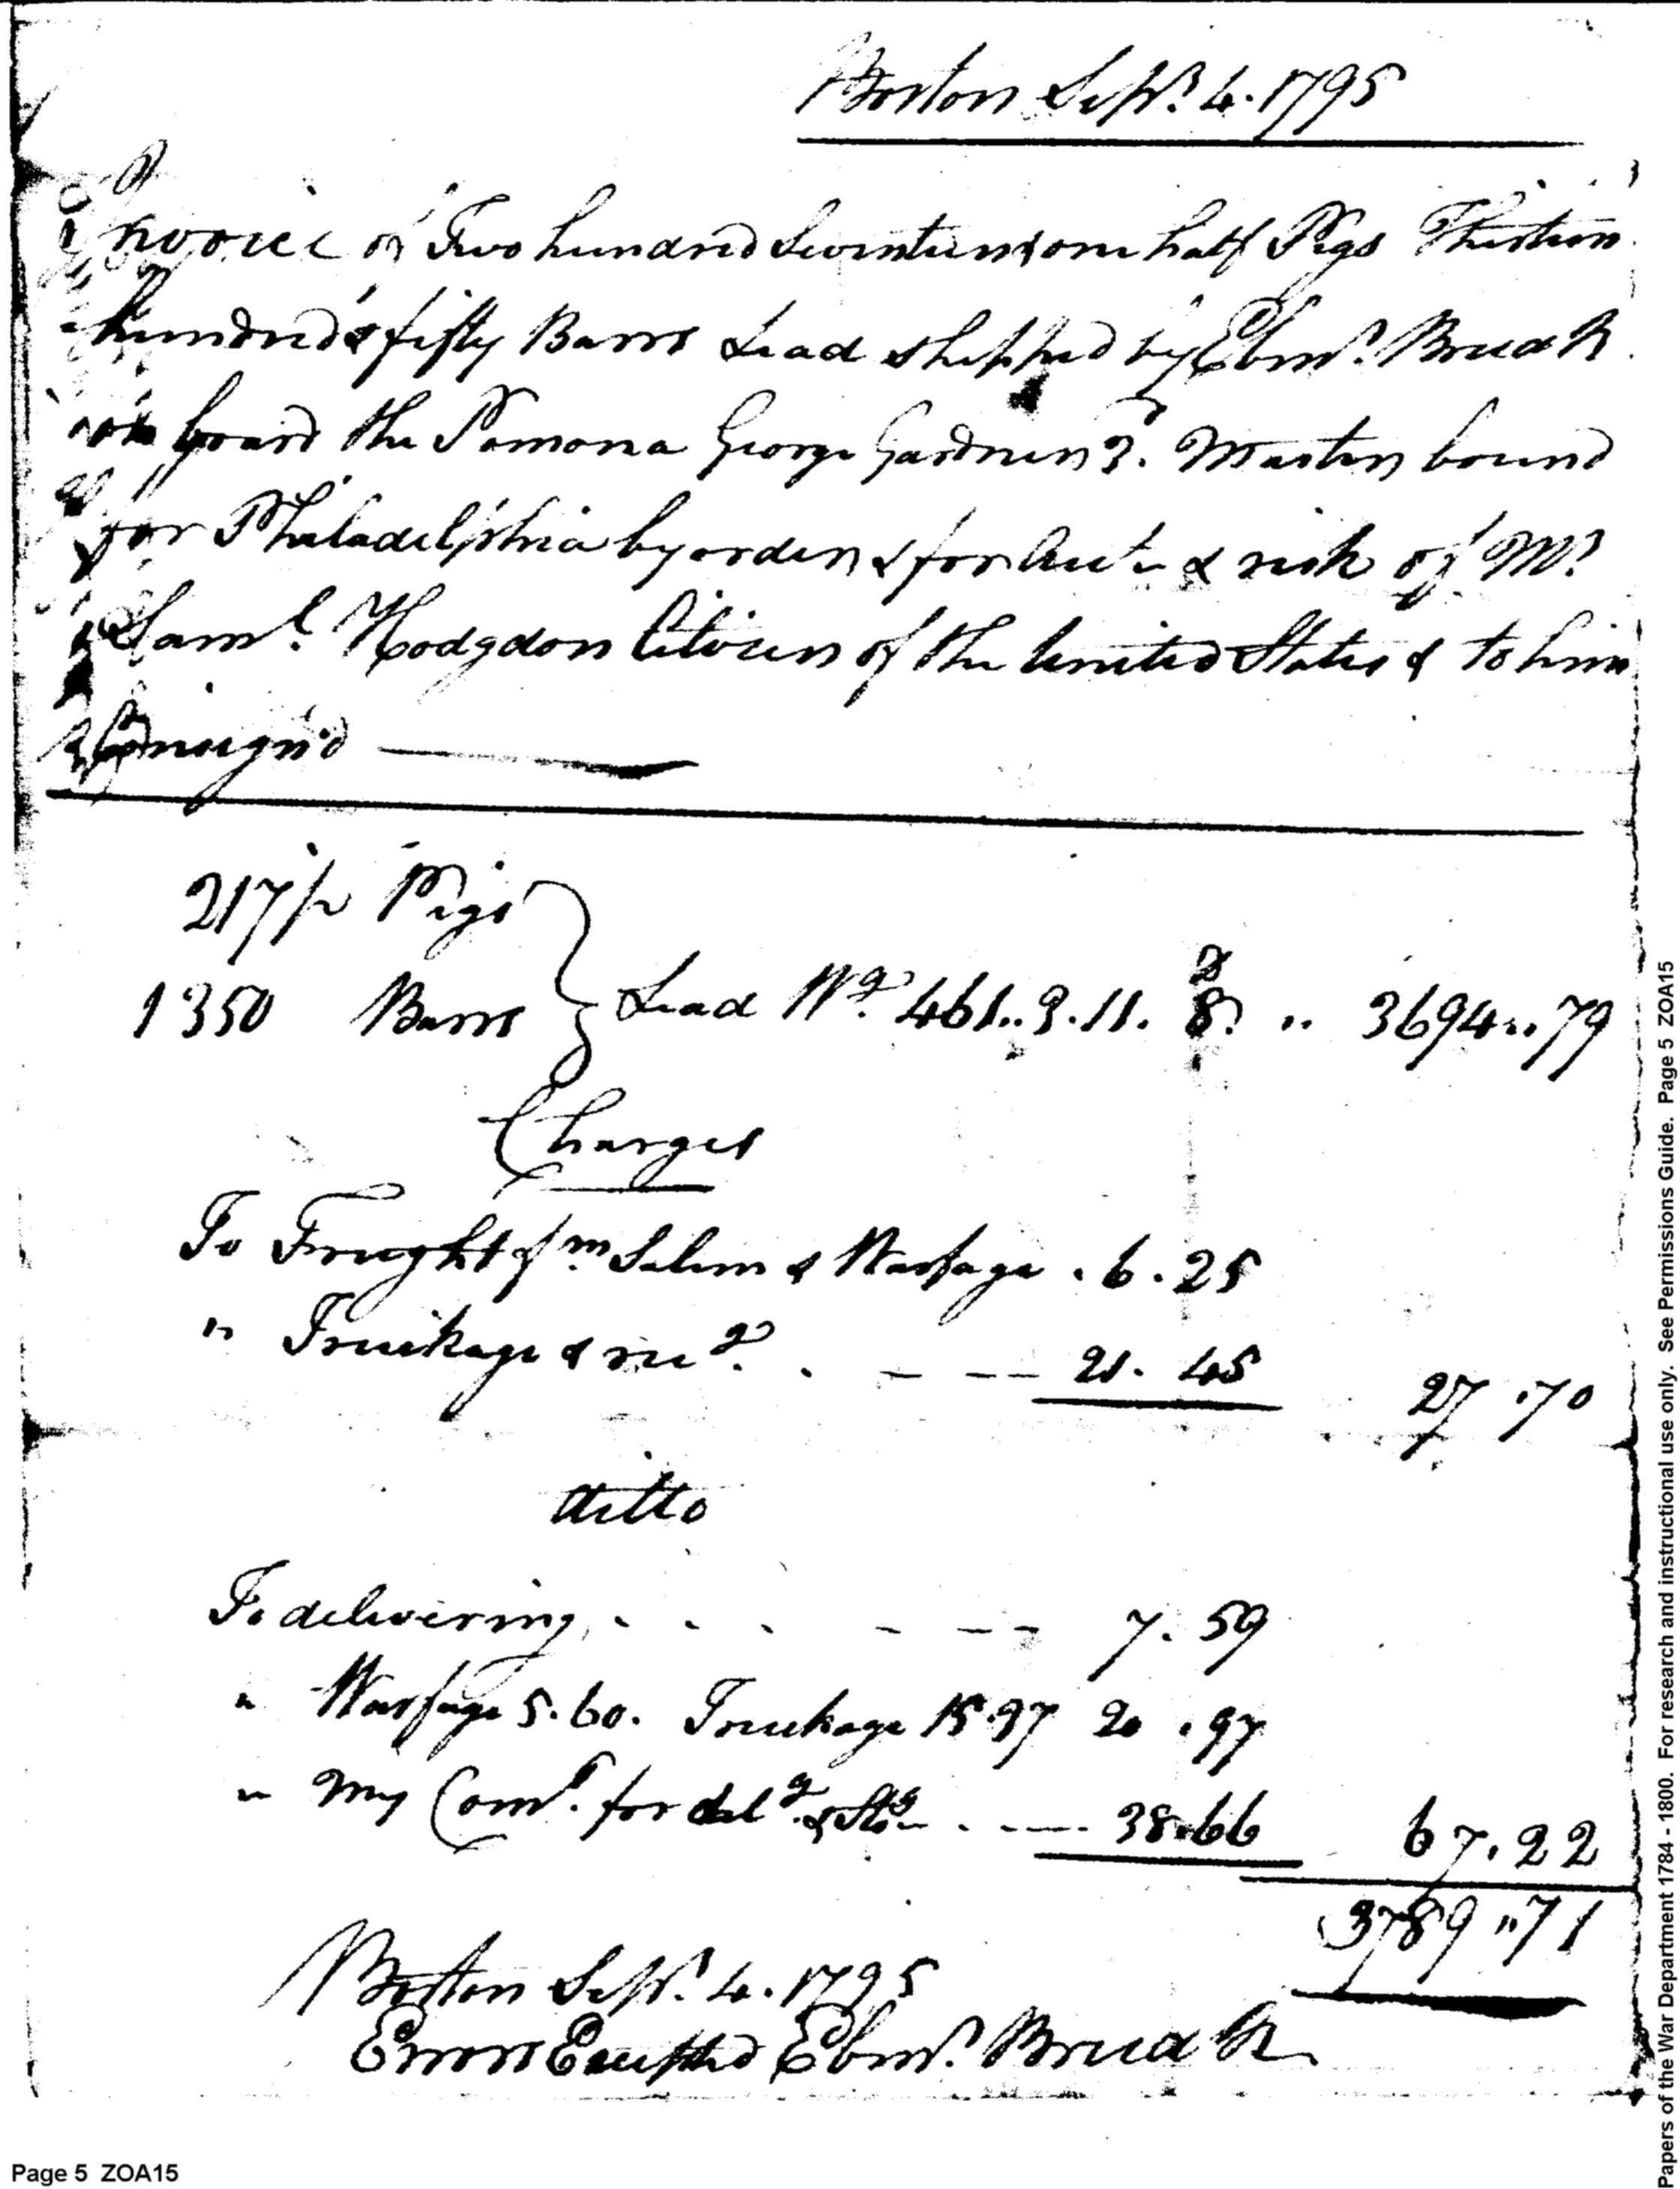 Boston Sepr. 4. 1795
Invoice of Two hundred Seventeen & one half Pigs Thirteen
hundred & fifty Barrs Lead shipped by Ebenr. Breed
on board the Pomona George Gardner 3. Master bound
for Philadelphia by order & for Acct. & risk of Mr.
Saml. Hodgdon Citizen of the United States & to him
Consign'd
217 1/2 Pigs
1350 Barrs } Lead Wg. 461..3.11. 8. .. 3694..79
Charges
To Freight fm. Salem & Warfage . 6.25
" Truckage & recg. . - -- 21. 45 27.70
ditto
To delivering . . . - -- 7. 59
" Warfage 5.60. Truckage 15.37 20.97
" My Comn. for delg. & Stog - . -- 38.66 67.22
3789"71
Boston Sepr. 4. 1795
Errors Excepted Ebenr. Breed
Page 5 ZOA15
Papers of the War Department 1784 - 1800. For research and instructional use only. See Permissions Guide. Page 5 ZOA15